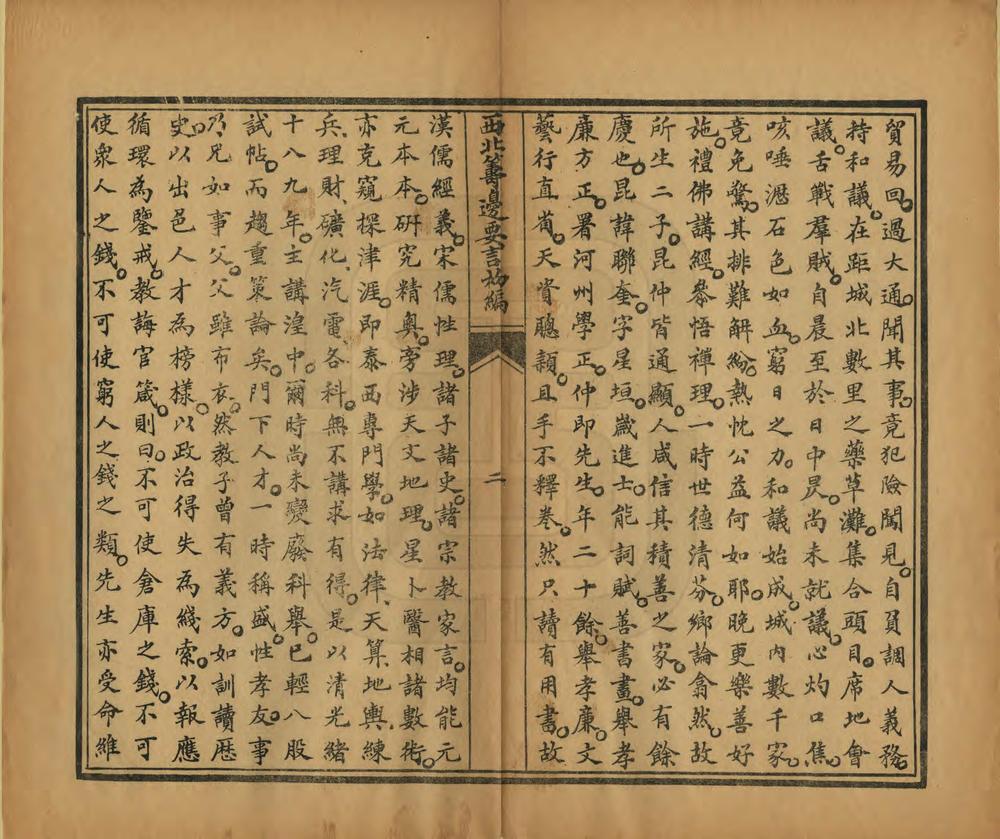 貿易回。過大通。聞其事。竟犯險闖見。自負調人義務。
持和議。在距城北數里之藥草灘。集合頭目。席地會
議。舌戰羣賊。自晨至於日中昃。尚未就議。心灼口焦。
咳唾瀝石色如血。窮日之力。和議始成。城內數千家。
竟免驚。其排難解紛。熱忱公益何如耶。晚更樂善好
施。禮佛講經。叅悟禪理。一時世德清芬。鄉論翕然。故
所生二子。昆仲皆通顯。人咸信其積善之家。必有餘
慶也。昆諱聯奎。字星垣。歲進士。能詞賦。善書畫。舉孝
廉方正。署河州學正。仲即先生。年二十餘。舉孝廉。文
藝行直萄。天資聰穎。且手不釋卷。然只讀有用書。故
西北籌邊要言初編
二
漢儒經義。宋儒性理。諸子諸史。諸宗教家言。均能元
元本本。研究精奥。旁涉天文地理。星卜醫相諸數術。
亦克窺探津涯。即泰西專門學。如法律、天算、地輿、練
兵、理財、礦化、汽電、各科。無不講求有得。是以清光緒
十八九年。主講湟中。爾時尚未變廢科舉。已輕八股
試帖。而趨重策論矣。門下人才。一時稱盛。性孝友。事
乃兄如事父。父雖布衣。然教子曾有義方。如訓讀歴
史。以出邑人才為榜樣。以政治得失為綫索。以報應
循環為鑒戒。教誨官箴。則曰。不可使倉庫之錢。不可
使衆人之錢。不可使窮人之錢之類。先生亦受命維